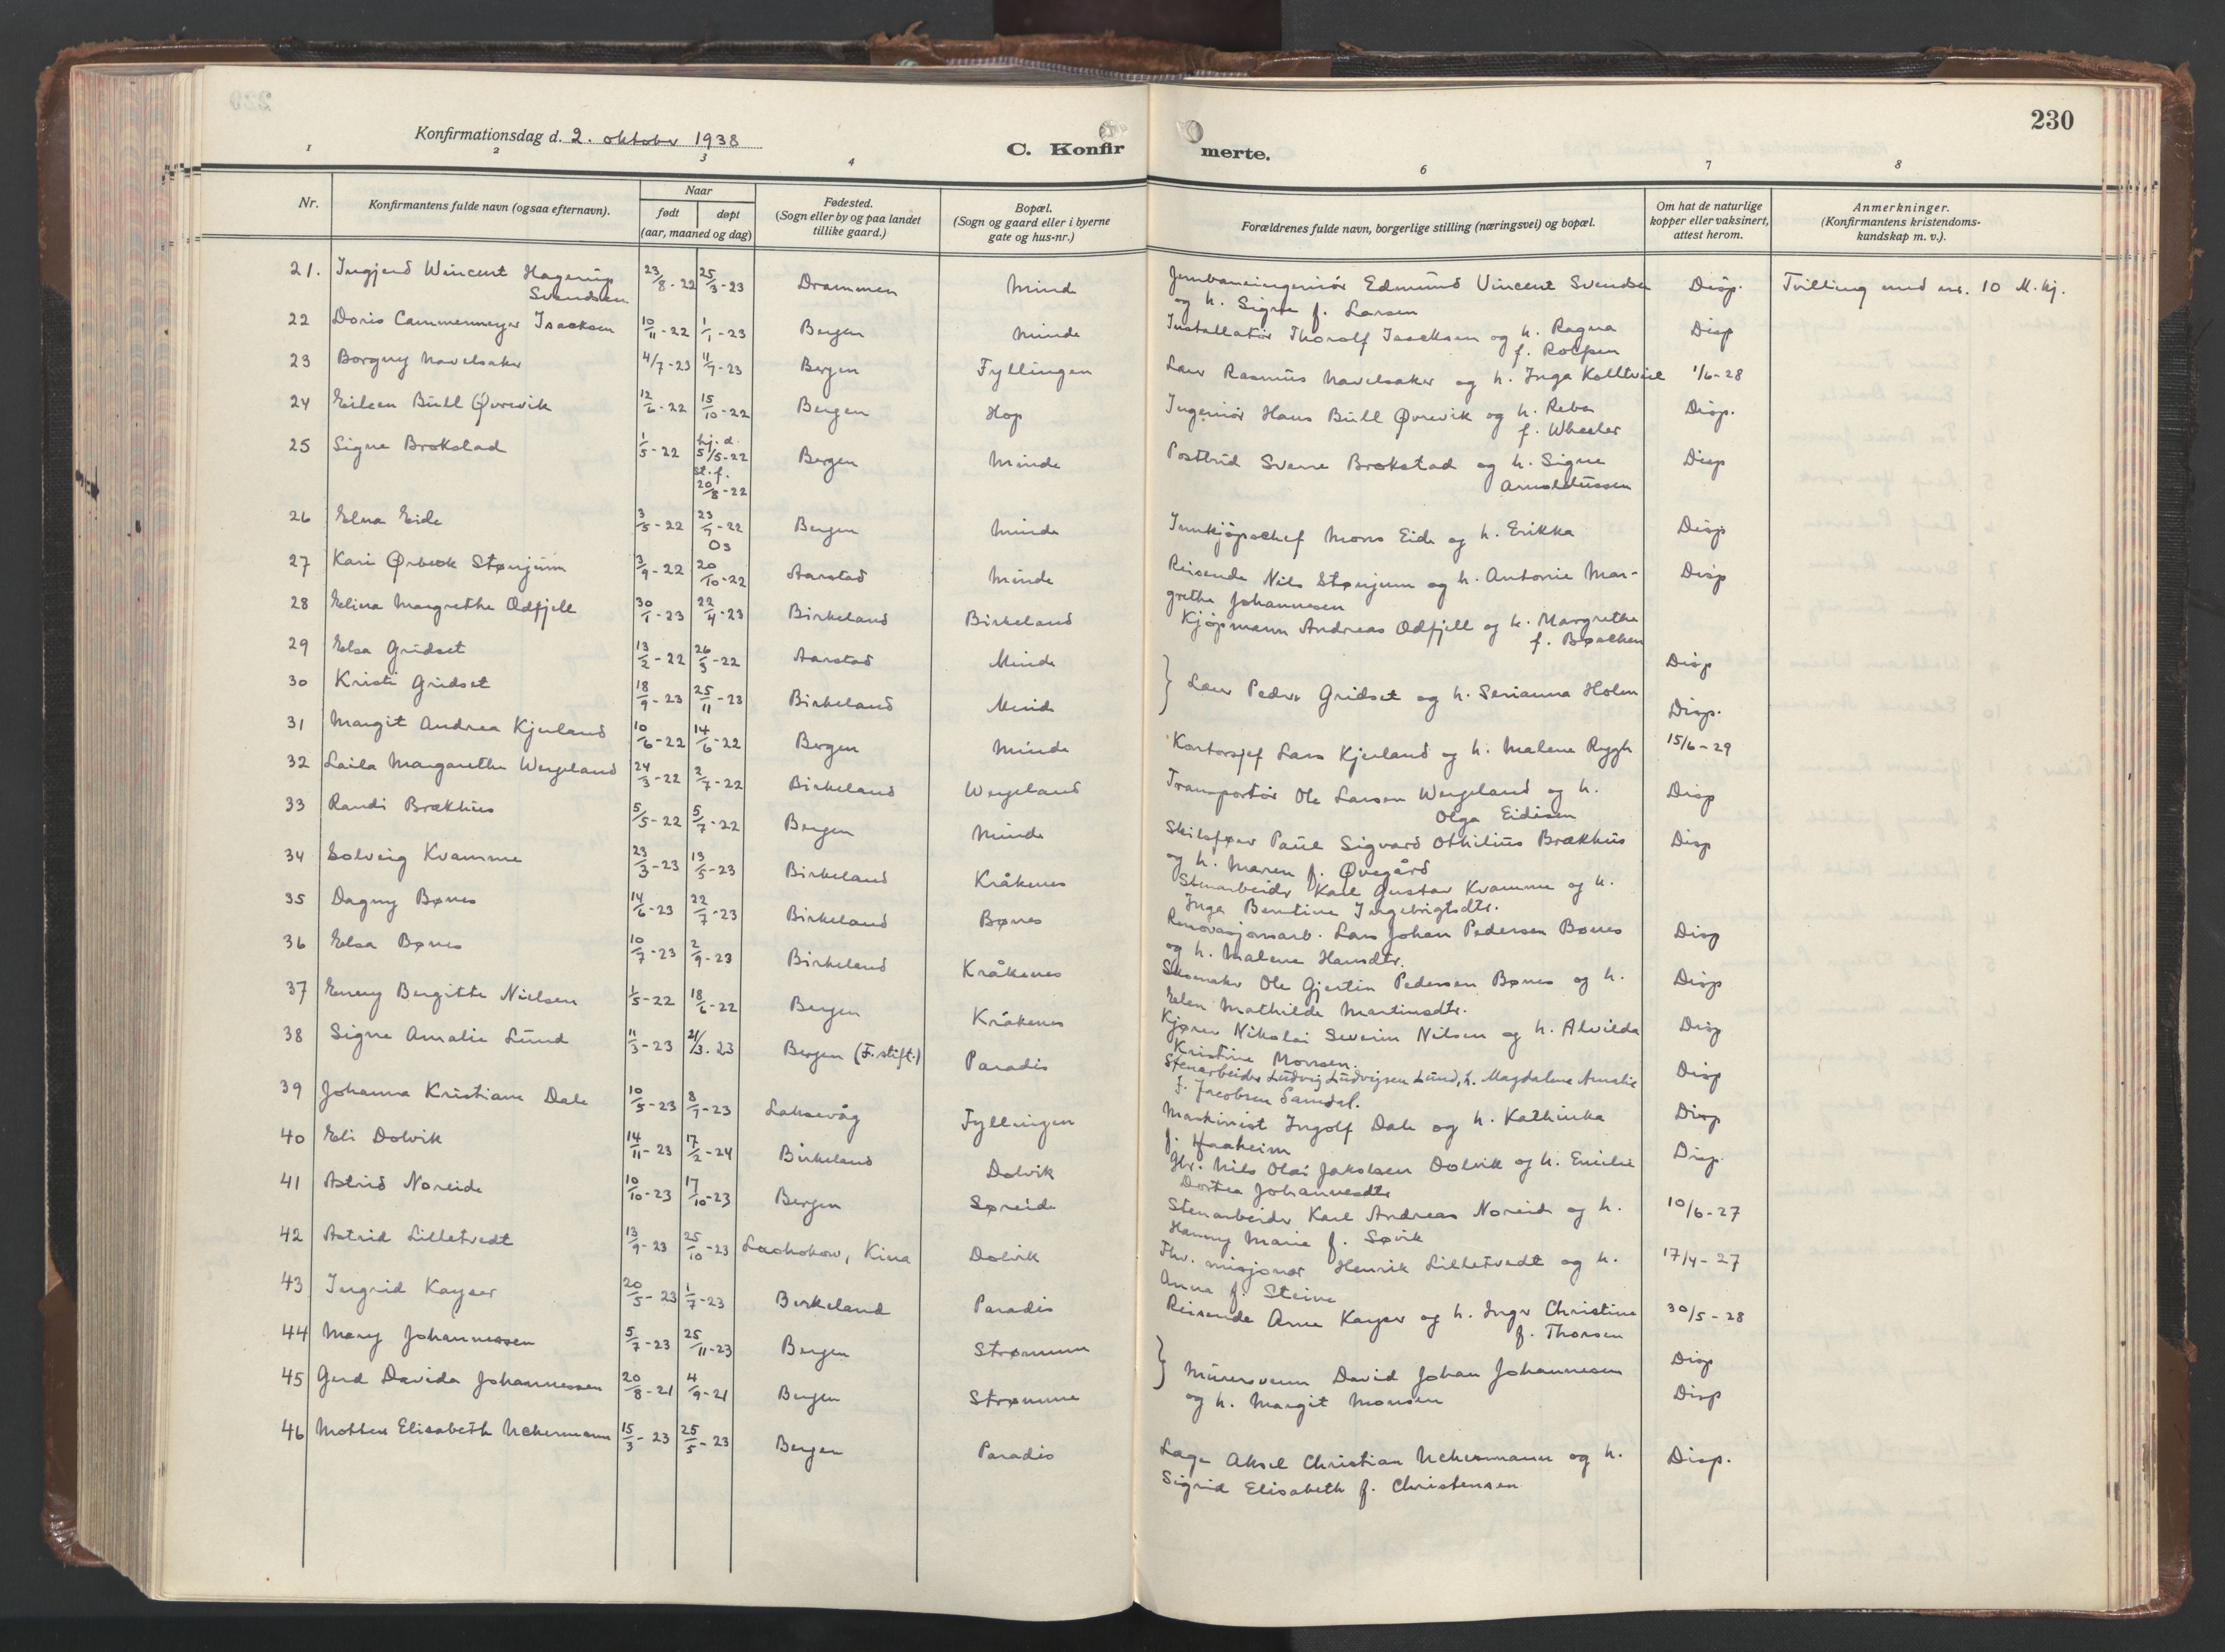 230
Konfirmationsdag d. 2. oktober 1938
C. Konfirmerte.
1 2 3 4 6 7 8
Nr. Konfirmantens fulde navn (ogsaa efternavn). Naar født døpt (aar, maaned og dag) Fødested. (Sogn eller by og paa landet tillike gaard.) Bopæl. (Sogn og gaard eller i byerne gate og hus-nr.) Forældrenes fulde navn, borgerlige stilling (næringsvei) og bopæl. Om hat de naturlige kopper eller vaksinert, attest herom. Anmerkninger. (Konfirmantens kristendomskundskap m. v.).
21. Ingjerd Wincent Hagerup Svendsen 23/8-22 25/3-23 Drammen Minde Jernbaneingeniør Edmund Vincent Svendsen og h. Signe f. Larsen Disp. Tvilling med nr. 10 M. kj.
22 Doris Cammermeyer Isacksen 10/11-22 1/1-23 Bergen Minde Installatør Thorolf Isacksen og h. Ragna f. Disp
23 Borgny Havelsaker 4/7-23 11/9-23 Bergen Fyllingen Rasmus Havelsaker og h. Inga Kolltveit 1/6-28
24 Eileen Bull Øvrevik 12/6-22 15/10-22 Bergen Hop Ingeniør Hans Bull Øvrevik og h. Reba f. Wheeler Disp.
25 Signe Brokstad 1/5-22 hj. d. 5/5-22 st. f. 20/8-22 Bergen Minde Postbud Sverre Brokstad og h. Signe Arnoldussen Disp
26 Elna Eide 3/5-22 23/7-22 Os Bergen Minde Innkjøpschef Mons Eide og h. Erikka Disp
27 Kari Ørbeck Stønjum 3/9-22 20/10-22 Aarstad Minde Reisende Nils Stønjum og h. Antonie Margrethe Johannesen Disp
28 Elina Margrethe Odfjell 30/1-23 22/4-23 Birkeland Birkeland Kjøpmann Andreas Odfjell og h. Margrethe f. Bøschen
29 Elsa Gridset 13/2-22 26/3-22 Aarstad Minde Disp
30 Kristi Gridset 18/9-23 25/11-23 Birkeland Minde } Lær Peder Gridset og h. Serianna Holen Disp.
31 Margit Andrea Kjerland 10/6-22 14/6-22 Bergen Minde Kontorsjef Lars Kjerland og h. Malene Rygh 15/6-29
32 Laila Margarethe Wergeland 24/3-22 2/7-22 Birkeland Wergeland Transportør Ole Larsen Wergeland og h. Olga Eidisen Disp
33 Randi Brækhus 5/5-22 5/7-22 Bergen Minde Skibsfører Paul Sigvard Othilius Brækhus og h. Maren f. Øvegård Disp
34 Solveig Kvamme 23/3-23 13/5-23 Birkeland Kråkenes Stenarbeider Karl Gustav Kvamme og h. Inga Berntine Ingebrigtsdtr.
35 Dagny Bønes 14/6-23 22/7-23 Birkeland Bønes Renovasjonsarb. Lars Johan Pedersen Bønes og h. Malene Hansdtr. Disp
36 Elsa Bønes 10/7-23 2/9-23 Birkeland Kråkenes Skomaker Ole Gjertin Pedersen Bønes og h. Elen Mathilde Martinsdtr. Disp
37 Enny Bergitte Nielsen 1/5-22 18/6-22 Bergen Kråkenes Kjører Nikolai Severin Nilsen og h. Alvilda Kristine Monsen. Disp
38 Signe Amalie Lund 11/3-23 21/3.23 Bergen (F.stift.) Paradis Stenarbeider Ludvig Ludvigsen Lund, h. Magdalene Amalie f. Jacobsen Samdal. Disp
39 Johanna Kristiane Dale 10/5-23 8/7-23 Laksevåg Fyllingen Maskinist Ingolf Dale og h. Kathinka f. Haaheim Disp
40 Eli Dolvik 14/11-23 17/2-24 Birkeland Dolvik Nils Olai Jakobsen Dolvik og h. Emilie Dortea Johannesdtr Disp.
41 Astrid Noreide 10/10-23 17/10-23 Bergen Søreide Stenarbeider Karl Andreas Noreide og h. Hanny Marie f. Søvik 10/6-27
42 Astrid Lilletvedt 13/9-23 25/10-23 Laohokow, Kina Dolvik Thv. misjonær Henrik Lilletvedt og h. Anna f. Steine 17/4-27
43 Ingrid Kayser 20/5-23 1/7-23 Birkeland Paradis Reisende Arne Kayser og h. Inger Christine f. Thorsen 30/5-28
44 Mary Johannessen 5/7-23 25/11-23 Bergen Strømmen Disp
45 Gerd Davida Johannessen 20/8-21 4/9-21 Bergen Strømme } Murersvenn David Johan Johannesen og h. Margit Monsen Disp
46 Motten Elisabeth Uchermann 15/3-23 25/5-23 Bergen Paradis Læge Aksel Christian Uchermann og h. Sigrid Elisabeth f. Christensen Disp.